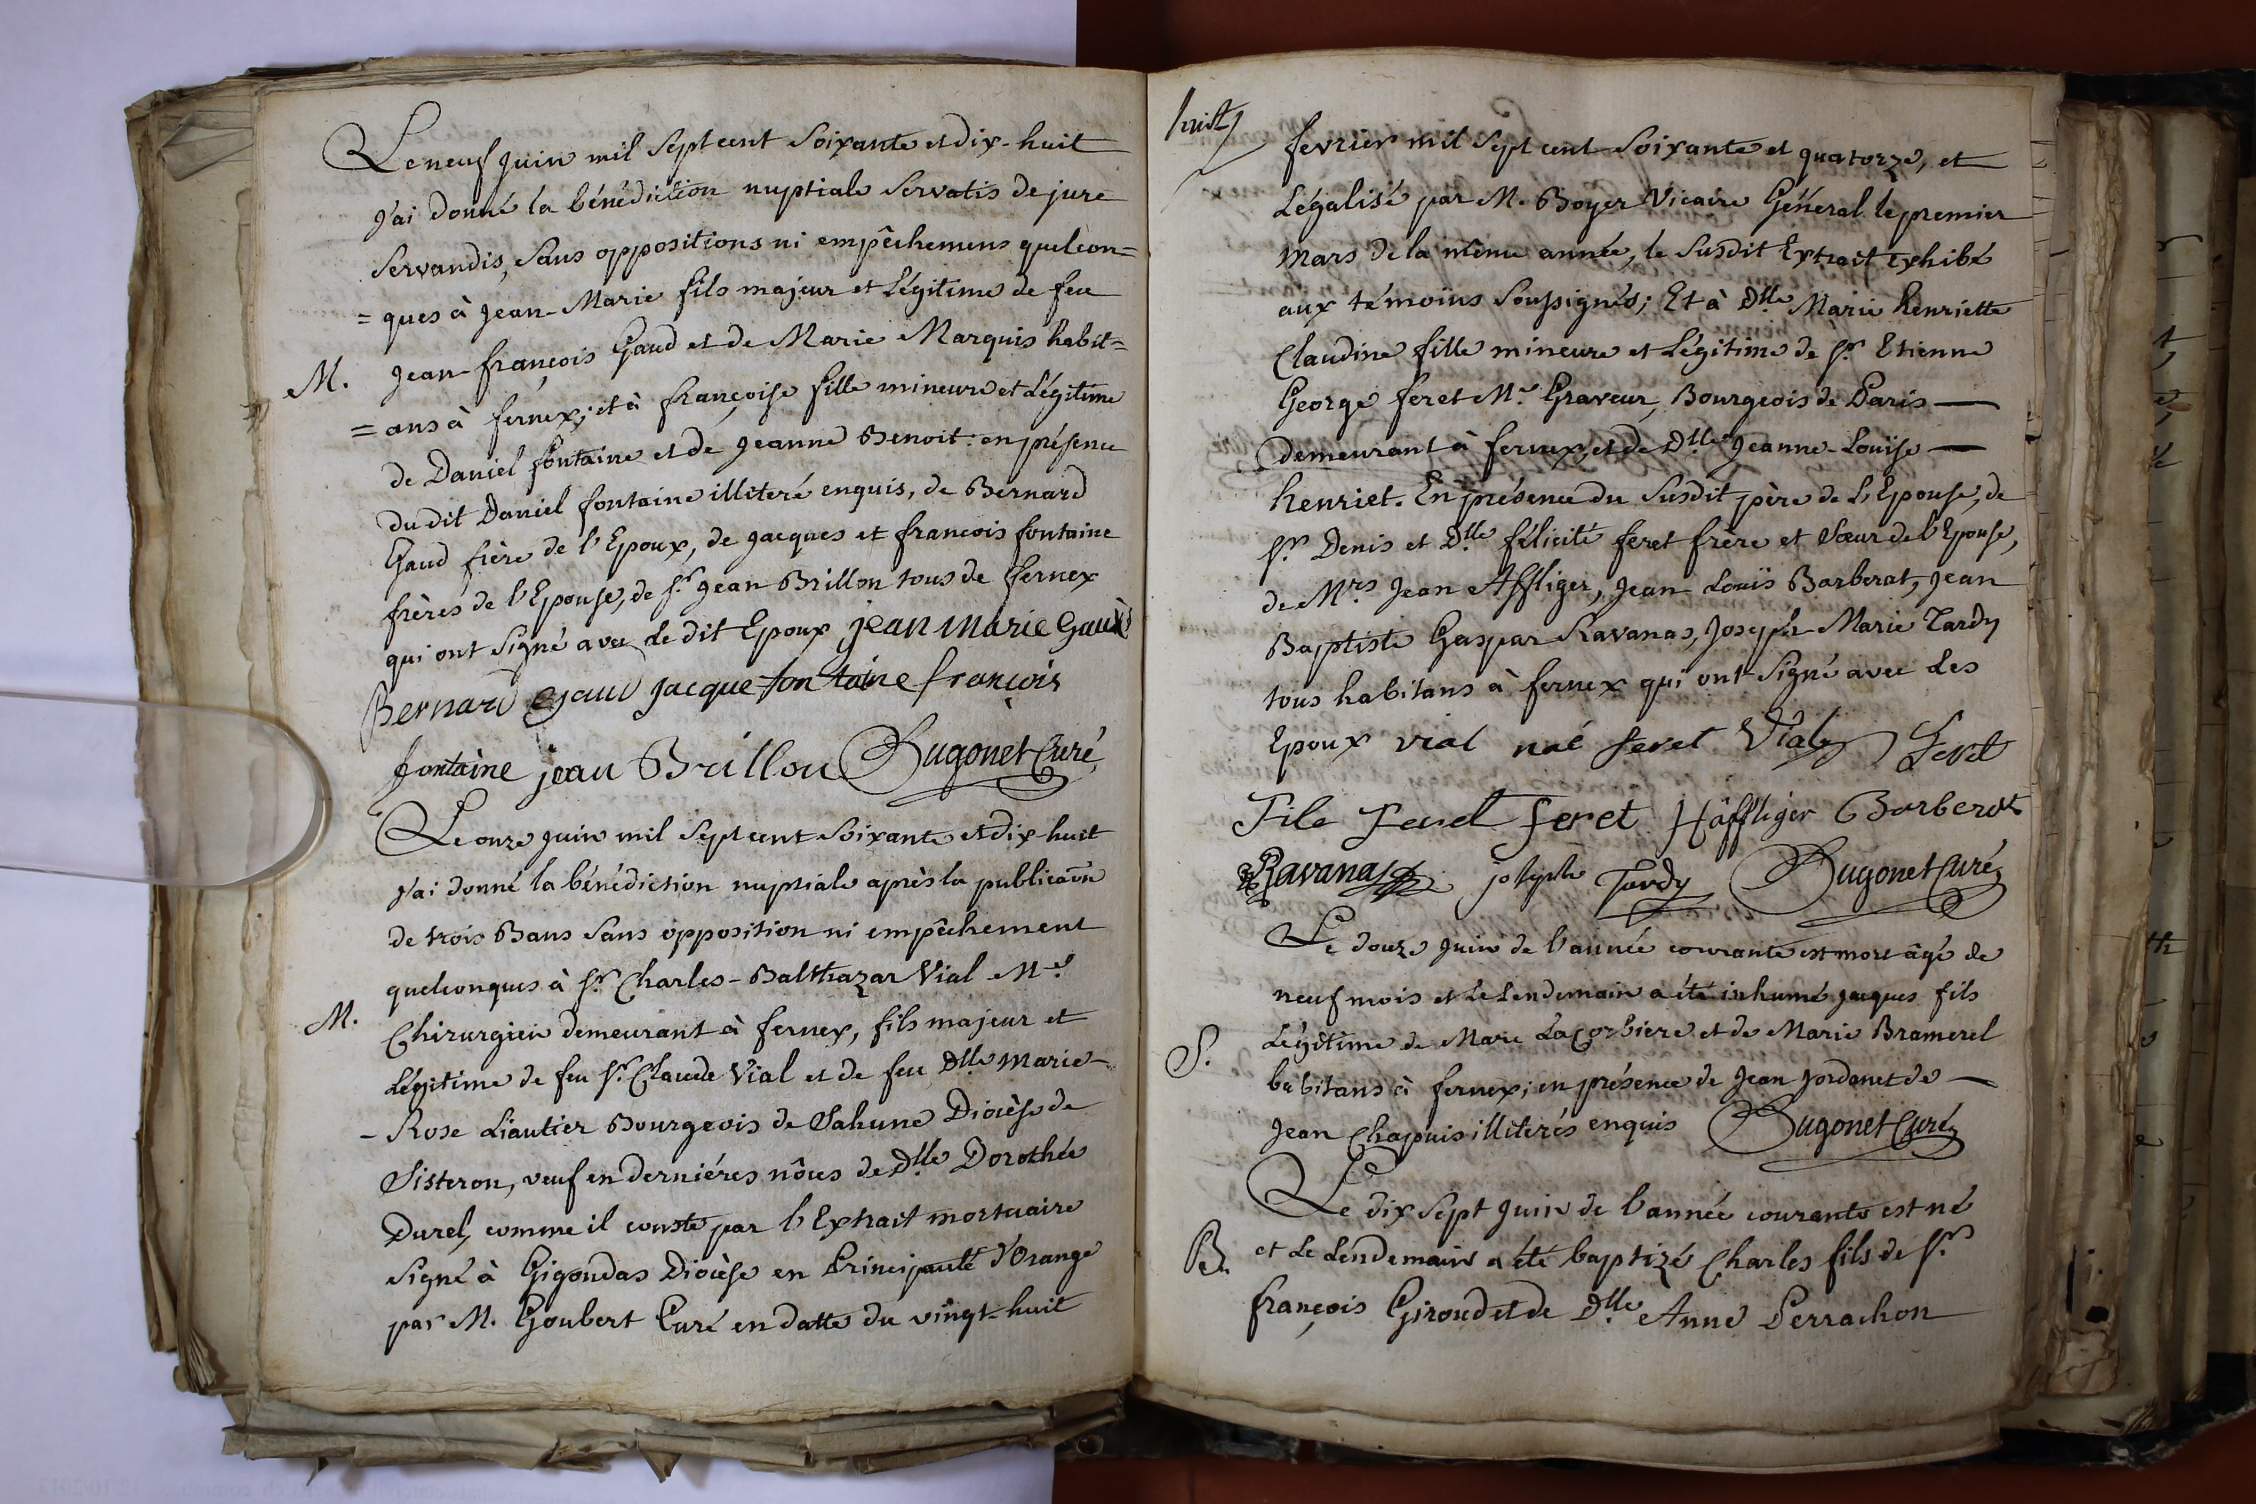 Le neuf juin mil sept cent soixante et dix-huit
j'ai donné la bénédiction nuptiale servatis de jure
servandis, sans oppositions ni empêchemens quelcon=
= ques à jean-Marie fils majeur et légitime de feu
M. jean-françois Gaud et de Marie Marquis habit=
= ans à fernex; et à françoise fille mineure et légitime
de Daniel fontaine et de jeanne Benoit: en présence
du dit Daniel fontaine illiteré enquis, de Bernard
Gaud frère de l'Epoux, de jacques et francois fontaine
frères de l'Epouse, de sr. jean Brillon tous de fernex
qui ont signé avec le dit Epoux jean marie Gaud
Bernard gaud jacque fontaine françois
fontaine jean Brillon Hugonet Curé
Le onze juin mil sept cent soixante et dix huit
j'ai donné la bénédiction nuptiale après la publicaõn
de trois Bans sans opposition ni empêchement
quelconques à sr. Charles-Balthazar Vial Me.
M. Chirurgien demeurant à fernex, fils majeur et
légitime de feu sr. Claude Vial et de feu Dlle marie-
- Rose Liautier Bourgeois de Sahune Diocèse de
Sisteron, veuf en derniéres nôces de Dlle Dorothée
Durel, comme il conste par l'Extrait mortuaire
signé à Gigondas Diocèse en Principauté d'Orange
par M. Goubert Curé en datte du vingt-huit
huit
fevrier mil sept cent soixante et quatorze, et
Légalisé par M. Boyer Vicaire Géneral le premier
mars de la même année, le susdit Extrait exhibé
aux témoins soussignés; Et à Dlle Marie henriette
Claudine fille mineure et légitime de sr. Etienne
George feret Me. Graveur, Bourgeois de Paris —
demeurant à fernex, et de Dlle jeanne-Louïse —
henriet. En présence du susdit père de l'Epouse, de
sr. Denis et Dlle félicité feret frère et sœur de l'Epouse,
de Mrs. jean Affliger, jean Louïs Barberat, jean
Baptiste Gaspar Ravanas, joseph-Marie Tardy
tous habitans à fernex qui ont signé avec les
Epoux vial née feret Vial feret
feret Häffliger Barberat
Ravanas joseph Tardy Hugonet Curé
Le douze juin de l'année courante est mort âgé de
neuf mois et le lendemain a été inhumé jacques fils
S. Légitime de Marc Lacorbiere et de Marie Bramerel
habitans à fernex; en présence de jean jordanet de —
jean Chapuis illiterés enquis Hugonet Curé
Le dix sept juin de l'année courante est né
B. et le lendemain a été baptizé Charles fils de sr.
françois Giroud et de Dlle Anne Perrachon